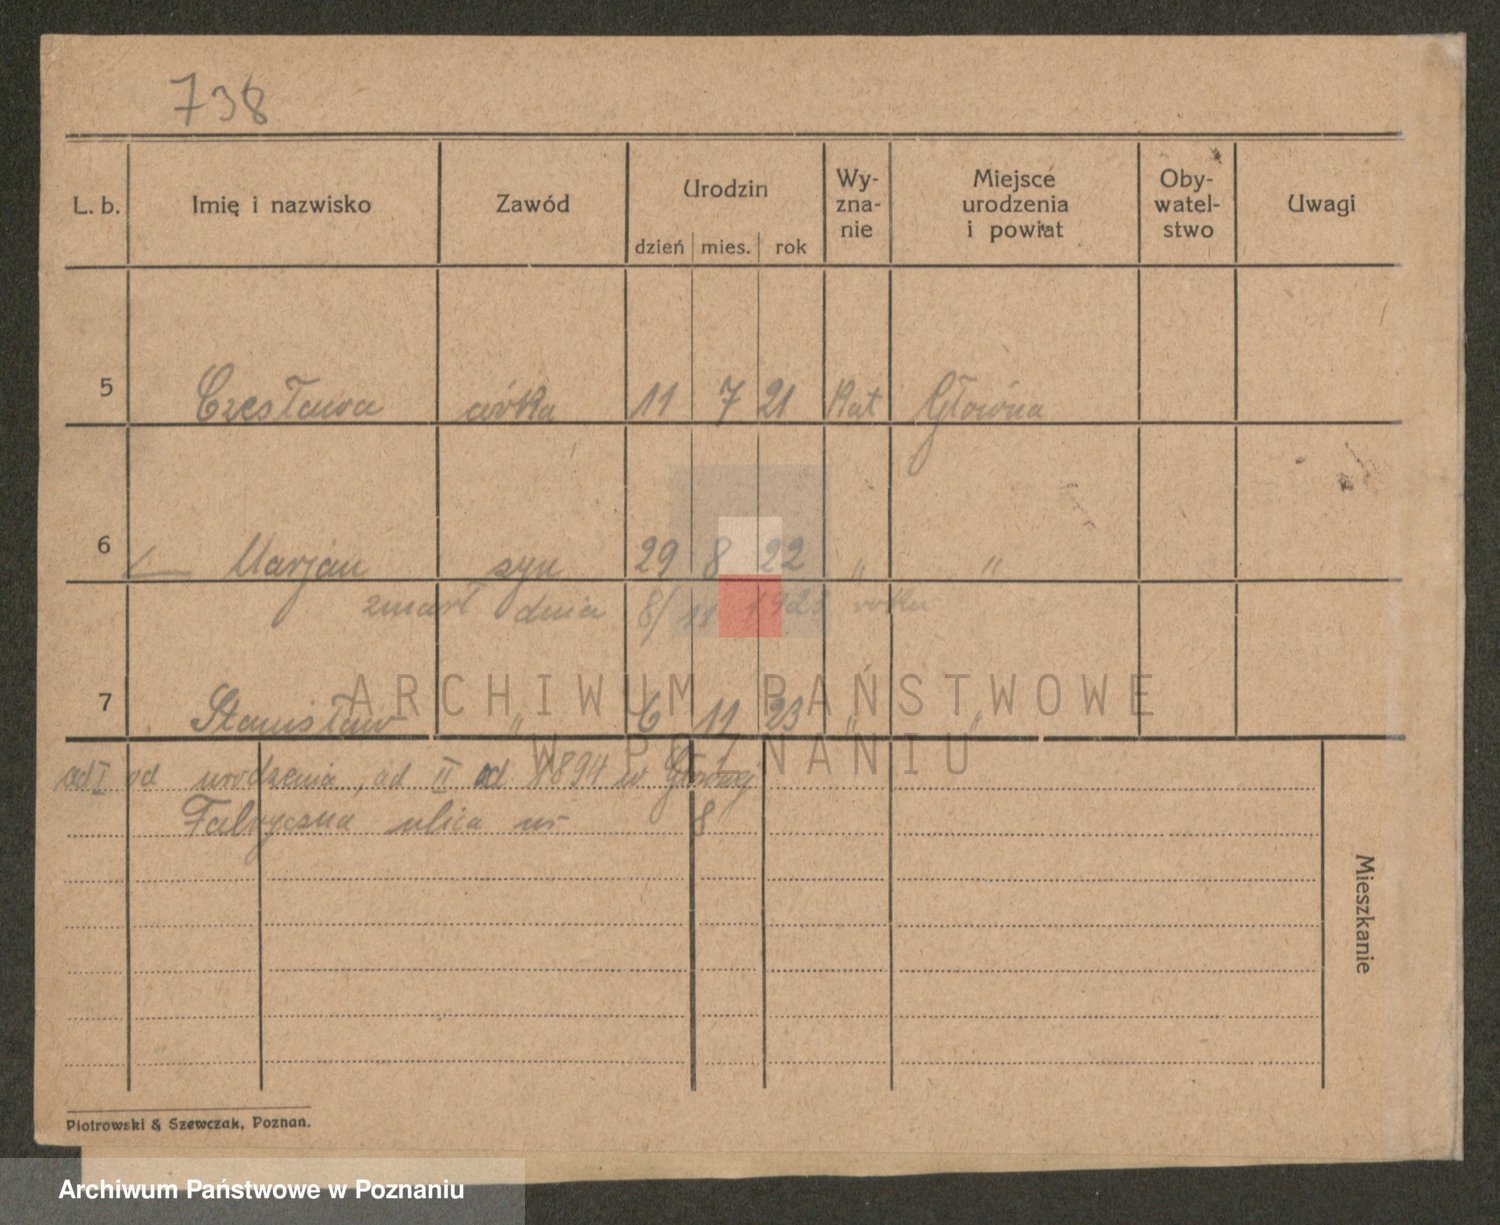 738
L. b. Imię i nazwisko Zawód Urodzin dzień mies. rok Wy-zna-nie Miejsce urodzenia i powiat Oby-watel-stwo Uwagi
5 Czesława córka 11 7 21 Kat Główna
6 Marjan syn 29 8 22 " "
zmarł dnia 8/11 1923 roku
7 Stanisław " 6 11 23 " "
ad I od urodzenia, ad II od 1894 w Głównej
Fabryczna ulica nr 8
Mieszkanie
Piotrowski & Szewczak, Poznań.
ARCHIWUM PAŃSTWOWE
W POZNANIU
Archiwum Państwowe w Poznaniu